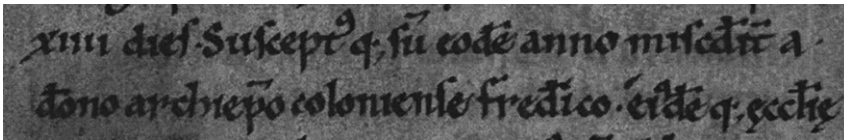 xıııı dieſ· Suſceptꝰ q; ſū eodē anno miſcd̄it̄ a·
d̄ono archiep̄o colonienſe fred̄ico· eid̄e q; ęccłię